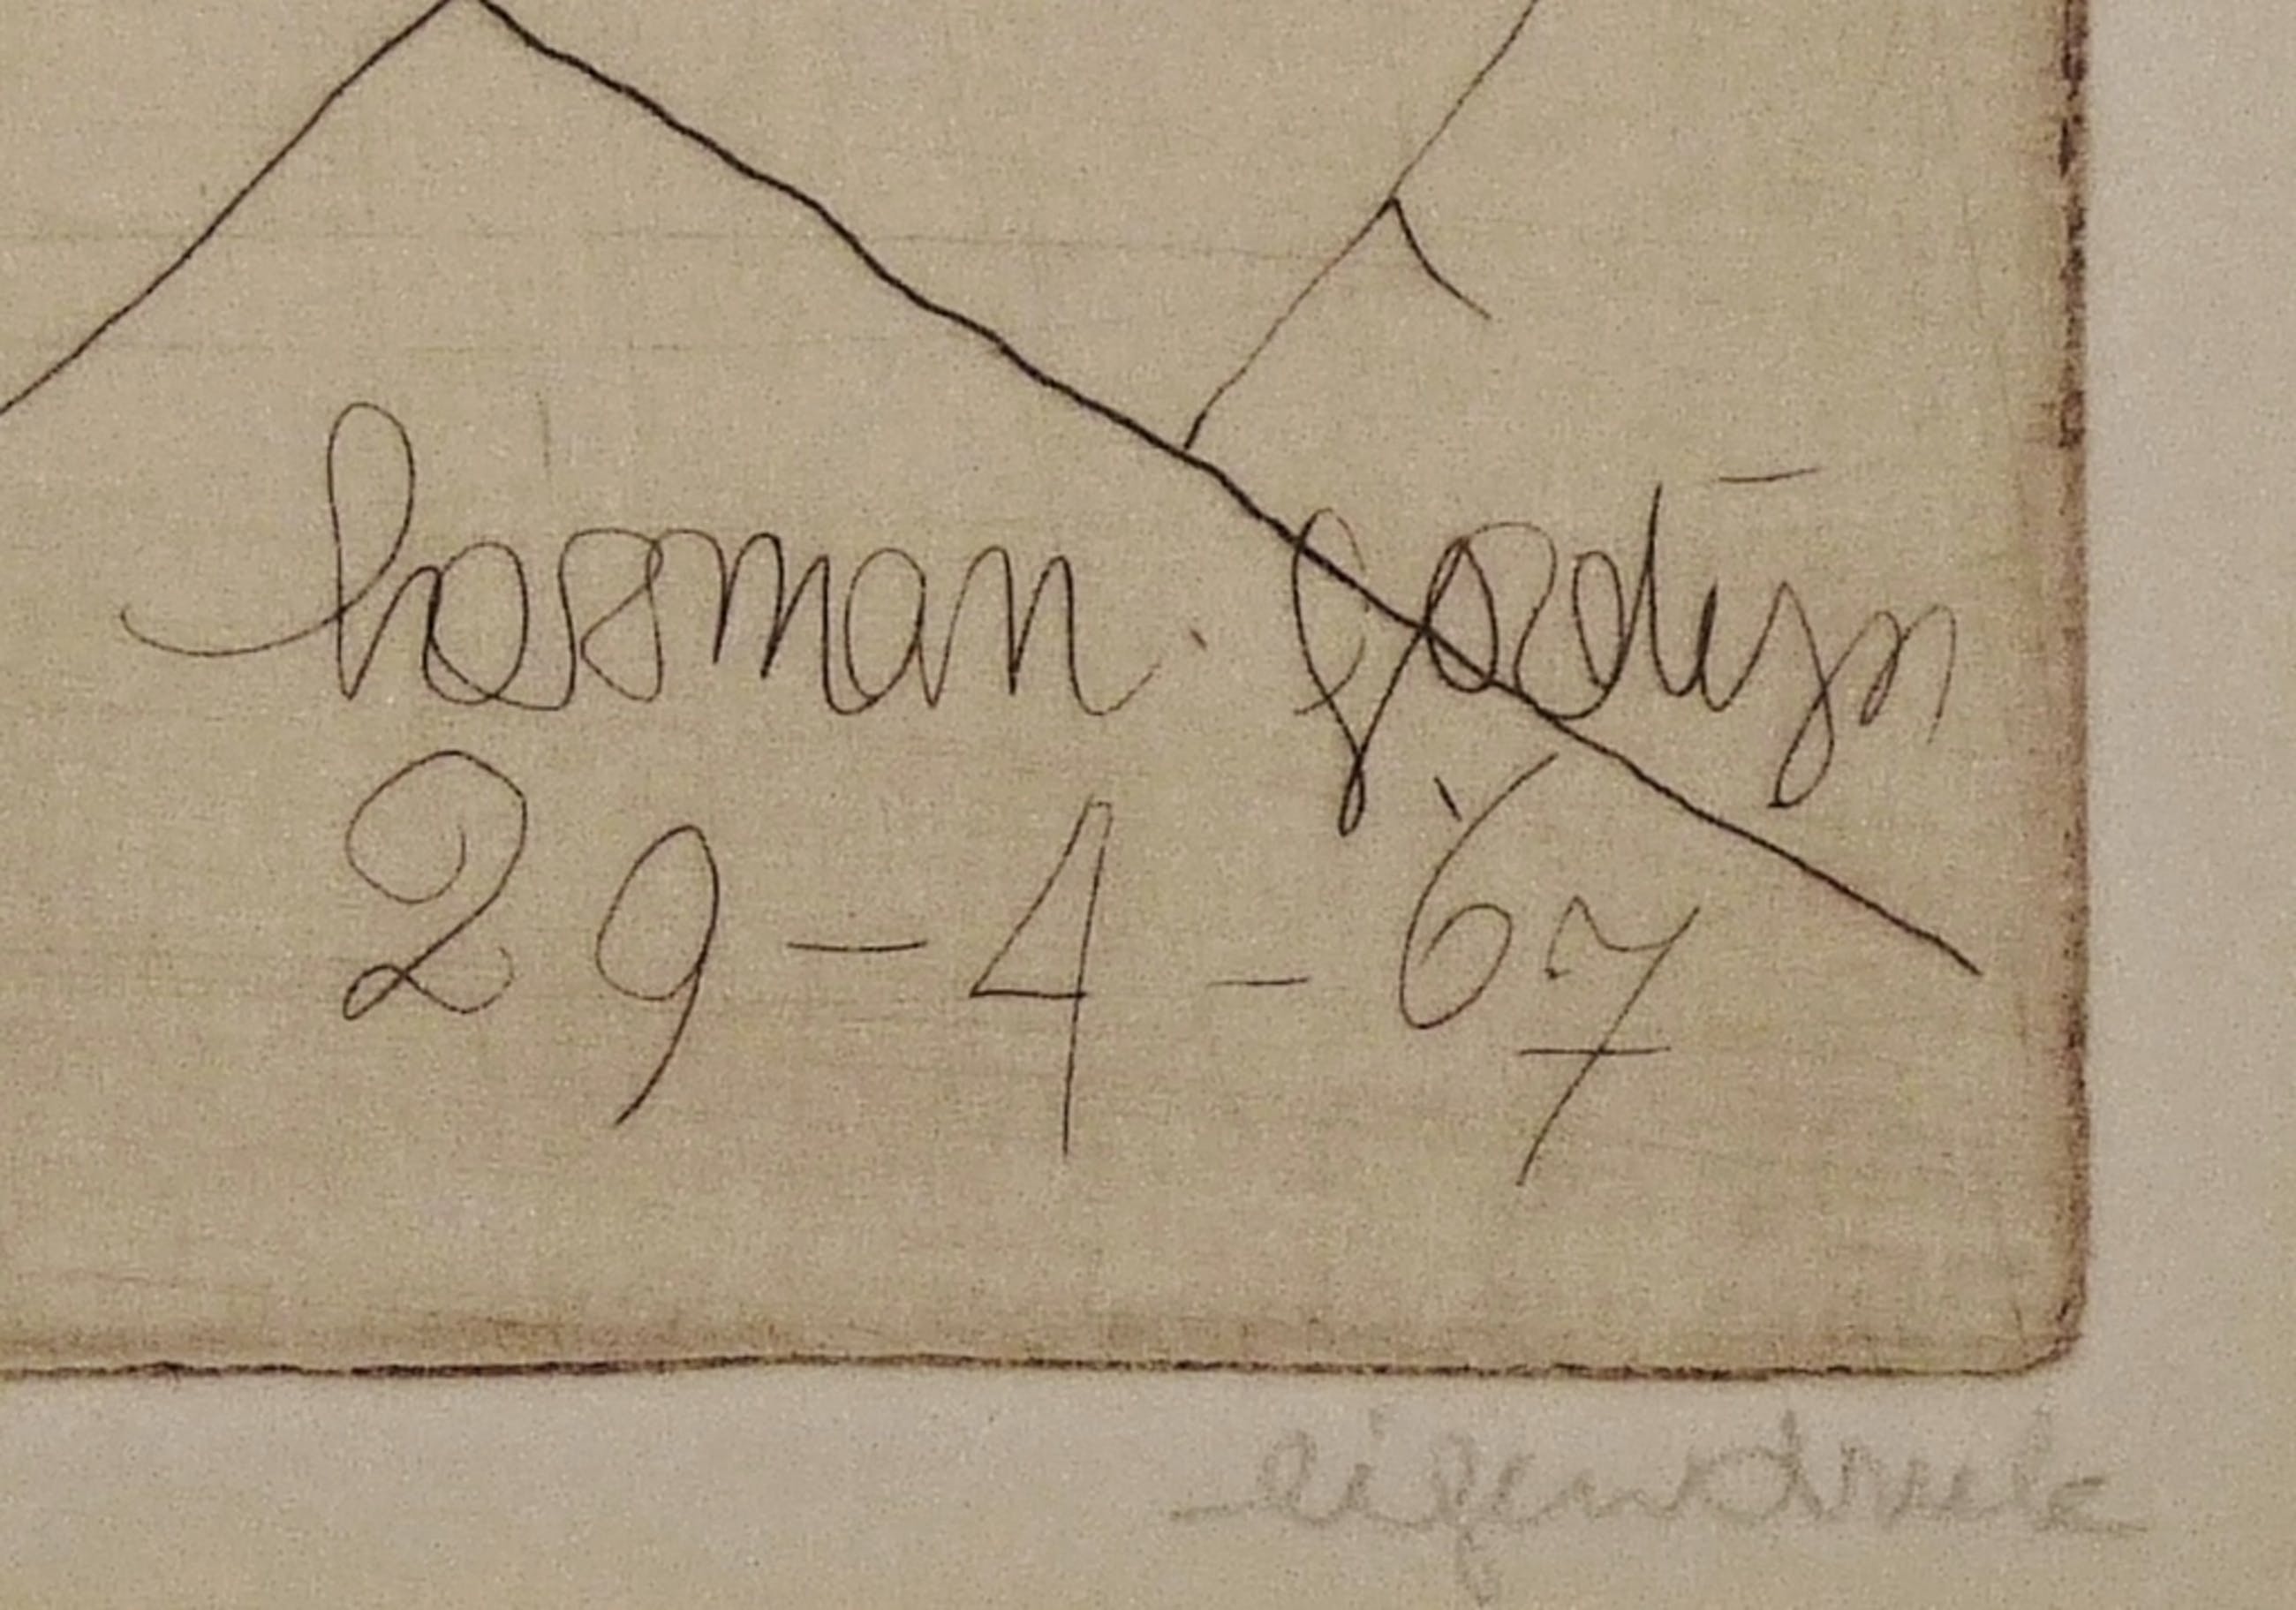 herman. gordijn
29-4-67
eigendruk